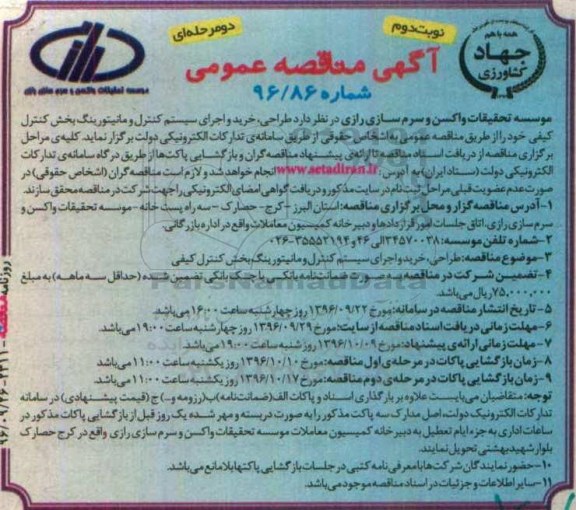 نوبت دوم
دو مرحله‌ای
همه با هم
جهاد
کشاورزی
موسسه تحقیقات واکسن و سرم سازی رازی
آگهی مناقصه عمومی
شماره ۹۶/۸۶
موسسه تحقیقات واکسن و سرم سازی رازی در نظر دارد طراحی، خرید و اجرای سیستم کنترل و مانیتورینگ بخش کنترل
کیفی خود را از طریق مناقصه عمومی به اشخاص حقوقی از طریق سامانه‌ی تدارکات الکترونیکی دولت برگزار نماید. کلیه‌ی مراحل
برگزاری مناقصه از دریافت اسناد مناقصه تا ارائه‌ی پیشنهاد مناقصه گران و بازگشایی پاکت‌ها از طریق درگاه سامانه‌ی تدارکات
الکترونیکی دولت (ستاد ایران) به آدرس: www.setadiran.ir انجام خواهد شد و لازم است مناقصه گران (اشخاص حقوقی) در
صورت عدم عضویت قبلی مراحل ثبت نام در سایت مذکور و دریافت گواهی امضای الکترونیکی را جهت شرکت در مناقصه محقق سازند.
۱-آدرس مناقصه گزار و محل برگزاری مناقصه: استان البرز - کرج- حصارک - سه راه پست خانه - موسسه تحقیقات واکسن و
سرم سازی رازی، اتاق جلسات امور قراردادها و دبیرخانه کمیسیون معاملات واقع در اداره بازرگانی.
۲-شماره تلفن موسسه: ۳۴۵۷۰۰۳۸الی ۴۶ و ۳۵۵۵۲۱۹۴-۰۲۶
۳-موضوع مناقصه: طراحی، خرید و اجرای سیستم کنترل و مانیتورینگ بخش کنترل کیفی
۴-تضمین شرکت در مناقصه به صورت ضمانت‌نامه بانکی یا چک بانکی تضمین شده (حداقل سه ماهه) به مبلغ
۷۵,۰۰۰,۰۰۰ ریال می‌باشد.
۵-تاریخ انتشار مناقصه در سامانه: مورخ ۱۳۹۶/۰۹/۲۲ روز چهارشنبه ساعت ۱۶:۰۰ می‌باشد.
۶-مهلت زمانی دریافت اسناد مناقصه از سایت: مورخ ۱۳۹۶/۰۹/۲۹ روز چهارشنبه ساعت ۱۹:۰۰ می‌باشد.
۷-مهلت زمانی ارائه‌ی پیشنهاد: مورخ ۱۳۹۶/۱۰/۰۹ روز شنبه ساعت ۱۹:۰۰ می‌باشد.
۸-زمان بازگشایی پاکات در مرحله‌ی اول مناقصه: مورخ ۱۳۹۶/۱۰/۱۰ روز یکشنبه ساعت ۱۱:۰۰ می‌باشد.
۹-زمان بازگشایی پاکات در مرحله‌ی دوم مناقصه: مورخ ۱۳۹۶/۱۰/۱۷ روز یکشنبه ساعت ۱۱:۰۰ می‌باشد.
توجه: متقاضیان می‌بایست علاوه بر بارگذاری اسناد و پاکات الف(ضمانت‌نامه)ب(رزومه و..) ج (قیمت پیشنهادی) در سامانه
تدارکات الکترونیک دولت، اصل مدارک سه پاکت مذکور را به صورت دربسته و مهر شده، یک روز قبل از بازگشایی پاکات مذکور در
ساعات اداری به جزء ایام تعطیل به دبیرخانه کمیسیون معاملات موسسه تحقیقات واکسن و سرم سازی رازی واقع در کرج حصارک
بلوار شهید بهشتی تحویل نمایند.
۱۰-حضور نمایندگان شرکت‌ها با معرفی‌نامه کتبی در جلسات بازگشایی پاکتها بلامانع می‌باشد.
۱۱-سایر اطلاعات و جزئیات در اسناد مناقصه موجود می‌باشد.
ParsNamadData